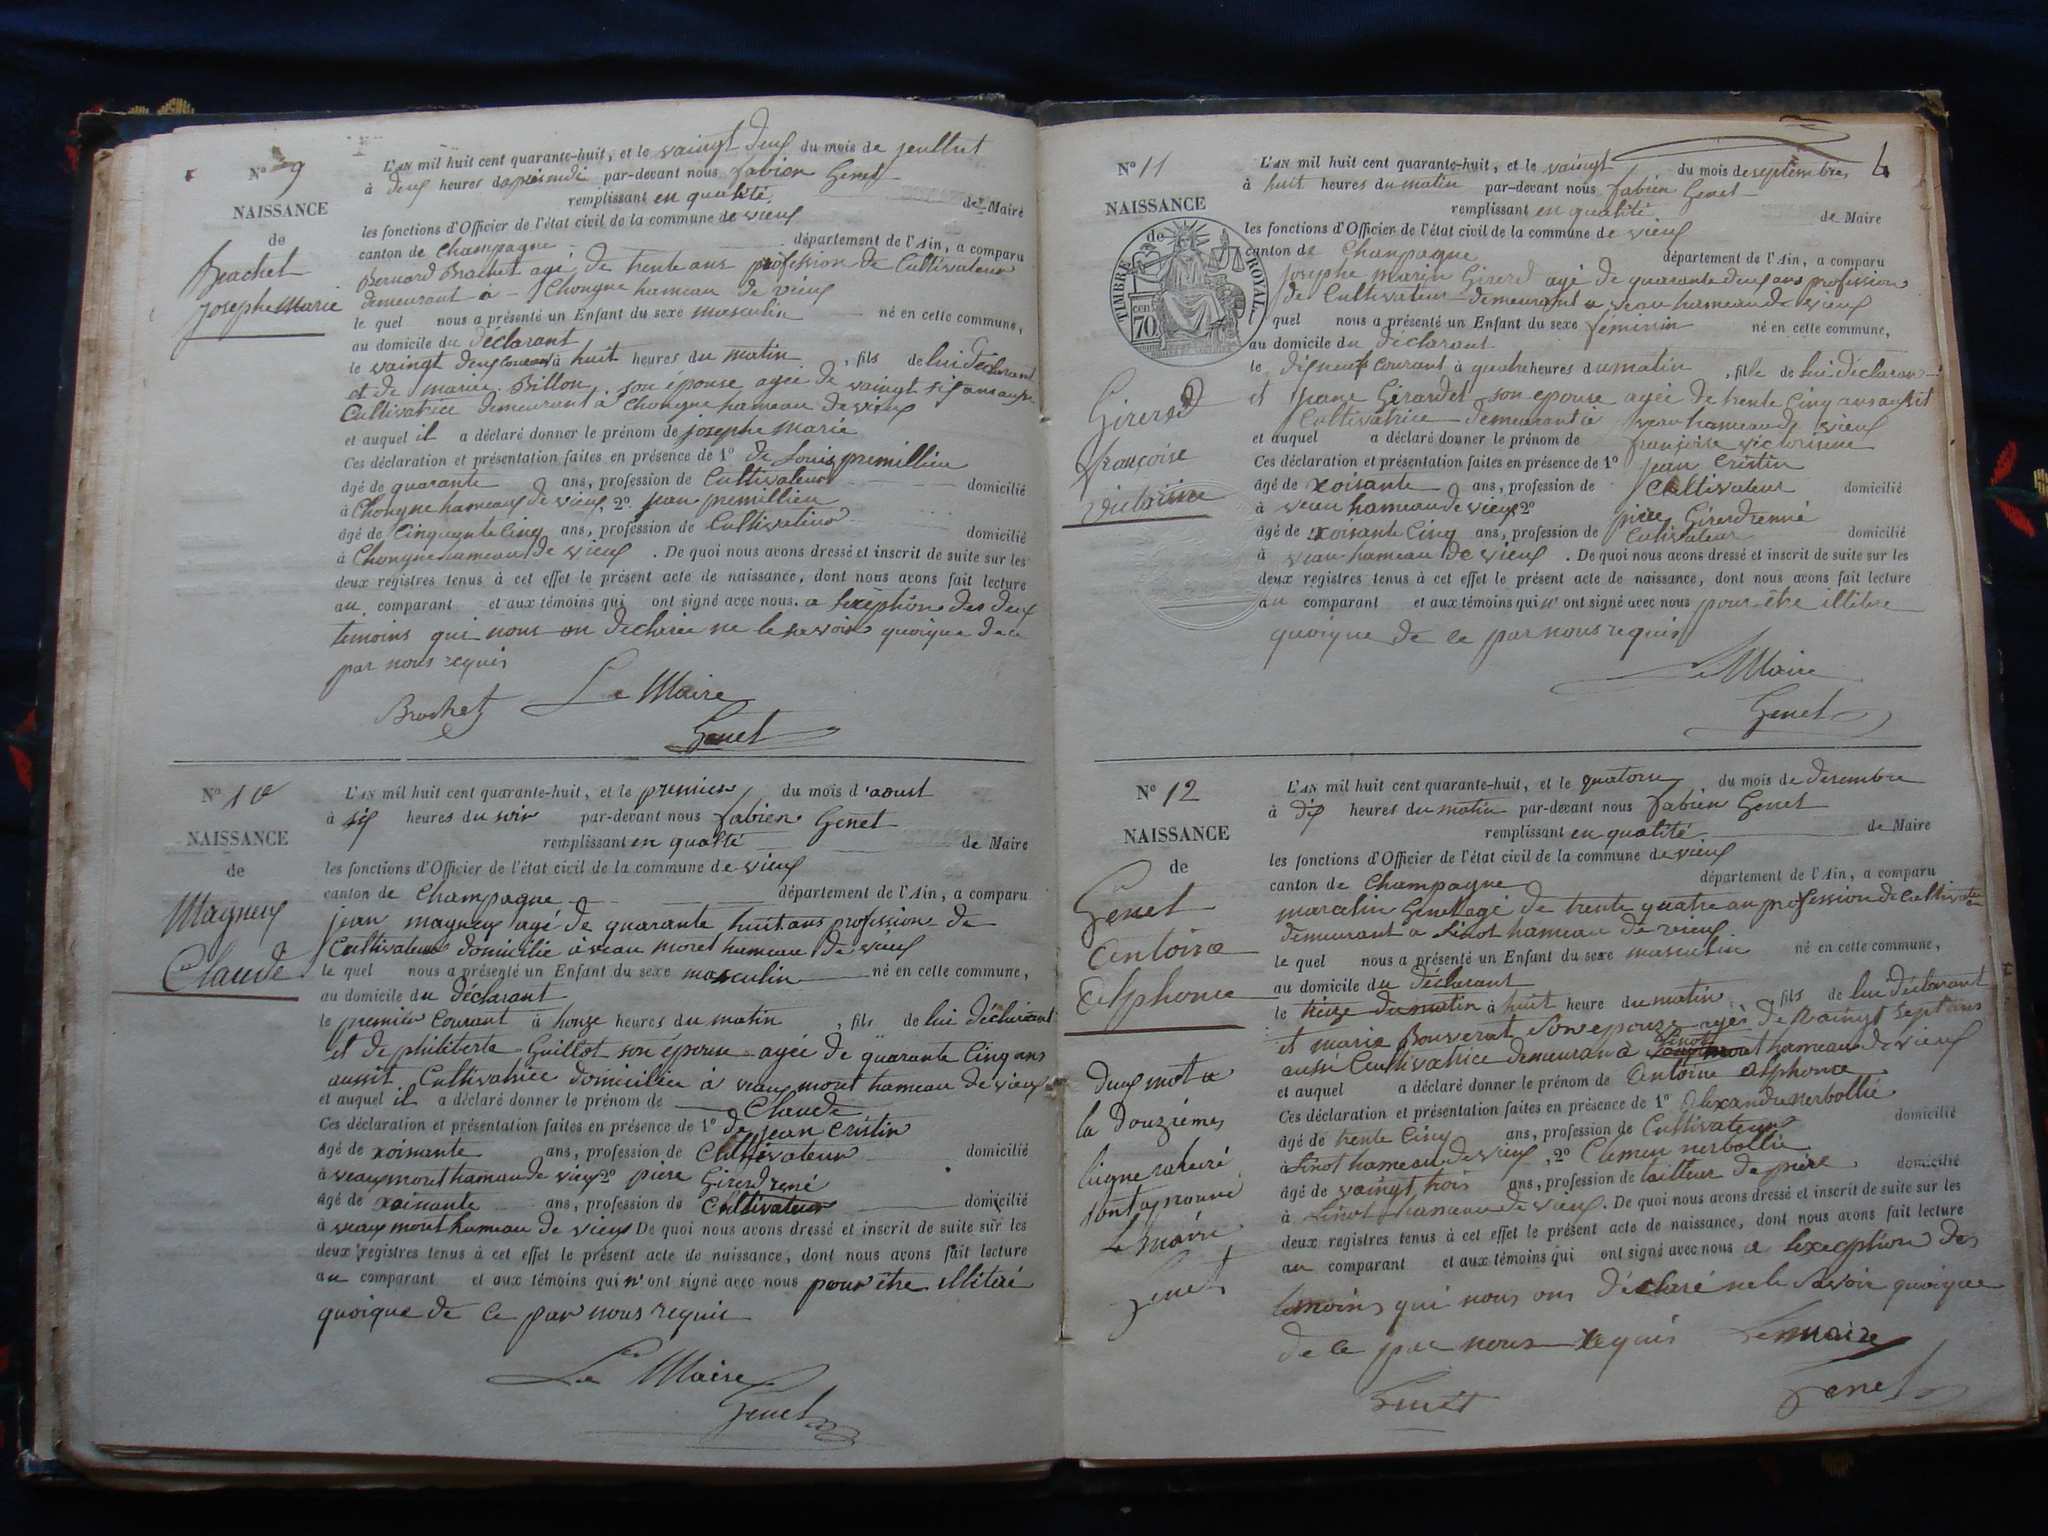 N° 9
NAISSANCE
de
Brachet
josephe Marie
L'AN mil huit cent quarante-huit, et le vaingt deux du mois de jeullet
à deux heures daprès midi par-devant nous fabien Genet
remplissant en qualité de Maire
les fonctions d'Officier de l'état civil de la commune de vieux
canton de Champagne département de l'Ain, a comparu
Bernard Brachet agé de trente ans profession de Cultivateur
demeurant à Chongne hameau de vieux
le quel nous a présenté un Enfant du sexe masculin né en cette commune,
au domicile du déclarant
le vaingt deux courant à huit heures du matin, fils de lui déclarant
et de marie Billon son épouse agée de vaingt six ans aussi
Cultivatrice demeurant à Chongne hameau de vieux
et auquel il a déclaré donner le prénom de josephe Marie
Ces déclaration et présentation faites en présence de 1° de Louis premillieu
âgé de quarante ans, profession de Cultivateur domicilié
à Chongne hameaux de vieux, 2° jean premillieu
âgé de Cinquante Cinq ans, profession de Cultivateur domicilié
à Chongne hameau de vieux. De quoi nous avons dressé et inscrit de suite sur les
deux registres tenus à cet effet le présent acte de naissance, dont nous avons fait lecture
au comparant et aux témoins qui ont signé avec nous. a lexeption des deux
temoins qui nous on declarée ne le savoir quoique de ce
par nous requis
Brachet Le Maire
Genet
N° 10
NAISSANCE
de
Magneux
Claude
L'AN mil huit cent quarante-huit, et le premier du mois d'aoust
à six heures du soir par-devant nous fabien Genet
remplissant en qualté de Maire
les fonctions d'Officier de l'état civil de la commune de vieux
canton de Champagne département de l'Ain, a comparu
jean magneux agé de quarante huit ans profession de
Cultivateur domicilié à veau moret hameau de vieux
le quel nous a présenté un Enfant du sexe masculin né en cette commune,
au domicile du déclarant
le premier courant à honze heures du matin, fils de lui déclarant
et de philiberte Guillot son épouse agée de quarante Cinq ans
aussit Cultivatrice domiciliée à veaux mont hameau de vieux
et auquel il a déclaré donner le prénom de Claude
Ces déclaration et présentation faites en présence de 1° de jean Cristin
âgé de xoisante ans, profession de Cultivateur domicilié
à veaux mont hamau de vieux 2° piere Girerd rené
âgé de xoisante ans, profession de Cultivateur domicilié
à veaux mont hameau de vieux De quoi nous avons dressé et inscrit de suite sur les
deux registres tenus à cet effet le présent acte de naissance, dont nous avons fait lecture
au comparant et aux témoins qui n'ont signé avec nous pour être illitéré
quoique de ce par nous requis
Le Maire
Genet
4
N° 11
NAISSANCE
de
TIMBRE ROYAL
70 cen
Girerd
françoise
victorine
L'AN mil huit cent quarante-huit, et le vaingt du mois de septembre
à huit heures du matin par-devant nous fabien Genet
remplissant en qualité de Maire
les fonctions d'Officier de l'état civil de la commune de vieux
canton de Champagne département de l'Ain, a comparu
josephe marin Girerd agé de quarante deux ans profession
de Cultivateur demeurant a veau hameau de vieux
quel nous a présenté un Enfant du sexe féminin né en cette commune,
au domicile du déclarant
le dix neuf courant à quatre heures du matin, fille de lui déclarant
et jeane Girardet son epouse agée de trente Cinq ans aussit
Cultivatrice demeurant à veau hameau de vieux
et auquel a déclaré donner le prénom de françoise victorinne
Ces déclaration et présentation faites en présence de 1° jean Cristin
âgé de xoisante ans, profession de Cultivateur domicilié
à veau hameau de vieux 2° piere Girerd renné
âgé de xoisante Cinq ans, profession de Cultivateur domicilié
à veau hameau de vieux. De quoi nous avons dressé et inscrit de suite sur les
deux registres tenus à cet effet le présent acte de naissance, dont nous avons fait lecture
au comparant et aux témoins qui n'ont signé avec nous pour être illitere
quoique de ce par nous requis
Le Maire
Genet
N° 12
NAISSANCE
de
Genet
Antoine
Alphonce
deux mot a
la Douzièmes
ligne raturé
sont aprouvé
Le maire
Genet
L'AN mil huit cent quarante-huit, et le quatorze du mois de desembre
à dix heures du matin par-devant nous fabien Genet
remplissant en qualité de Maire
les fonctions d'Officier de l'état civil de la commune de vieux
canton de Champagne département de l'Ain, a comparu
marcelin Genet agé de trente quatre an profession de Cultivateur
demeurant a Linot hameau de vieux
le quel nous a présenté un Enfant du sexe masculin né en cette commune,
au domicile du déclarant
le treize du matin à huit heure du matin, fils de lui déclarant
et marie Bouverat son epouze agés de vaingt sept ans
aussi Cultivatrice demeuran à Linot hameau de vieux
et auquel a déclaré donner le prénom de Antoine Alphonce
Ces déclaration et présentation faites en présence de 1° Alexandre nerbollié
âgé de trente Cinq ans, profession de Cultivateur domicilié
à Linot hameau de vieux, 2° Clemen nerbollié
âgé de vaingt trois ans, profession de tailleur de piére domicilié
à Linot hameau de vieux. De quoi nous avons dressé et inscrit de suite sur les
deux registres tenus à cet effet le présent acte de naissance, dont nous avons fait lecture
au comparant et aux témoins qui ont signé avec nous a lexception des
témoins qui nous ons déclaré ne le savoir quoique
de ce par nous requis Le maire
Genet Genet